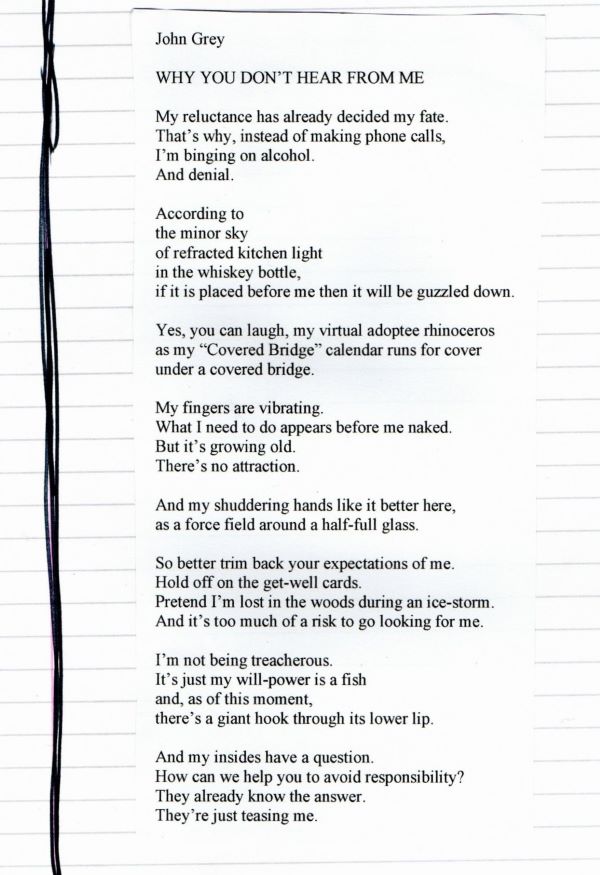 John Grey
WHY YOU DON'T HEAR FROM ME
My reluctance has already decided my fate.
That's why, instead of making phone calls,
I'm binging on alcohol.
And denial.
According to
the minor sky
of refracted kitchen light
in the whiskey bottle,
if it is placed before me then it will be guzzled down.
Yes, you can laugh, my virtual adoptee rhinoceros
as my “Covered Bridge” calendar runs for cover
under a covered bridge.
My fingers are vibrating.
What I need to do appears before me naked.
But it's growing old.
There's no attraction.
And my shuddering hands like it better here,
as a force field around a half-full glass.
So better trim back your expectations of me.
Hold off on the get-well cards.
Pretend I'm lost in the woods during an ice-storm.
And it's too much of a risk to go looking for me.
I'm not being treacherous.
It's just my will-power is a fish
and, as of this moment,
there's a giant hook through its lower lip.
And my insides have a question.
How can we help you to avoid responsibility?
They already know the answer.
They're just teasing me.